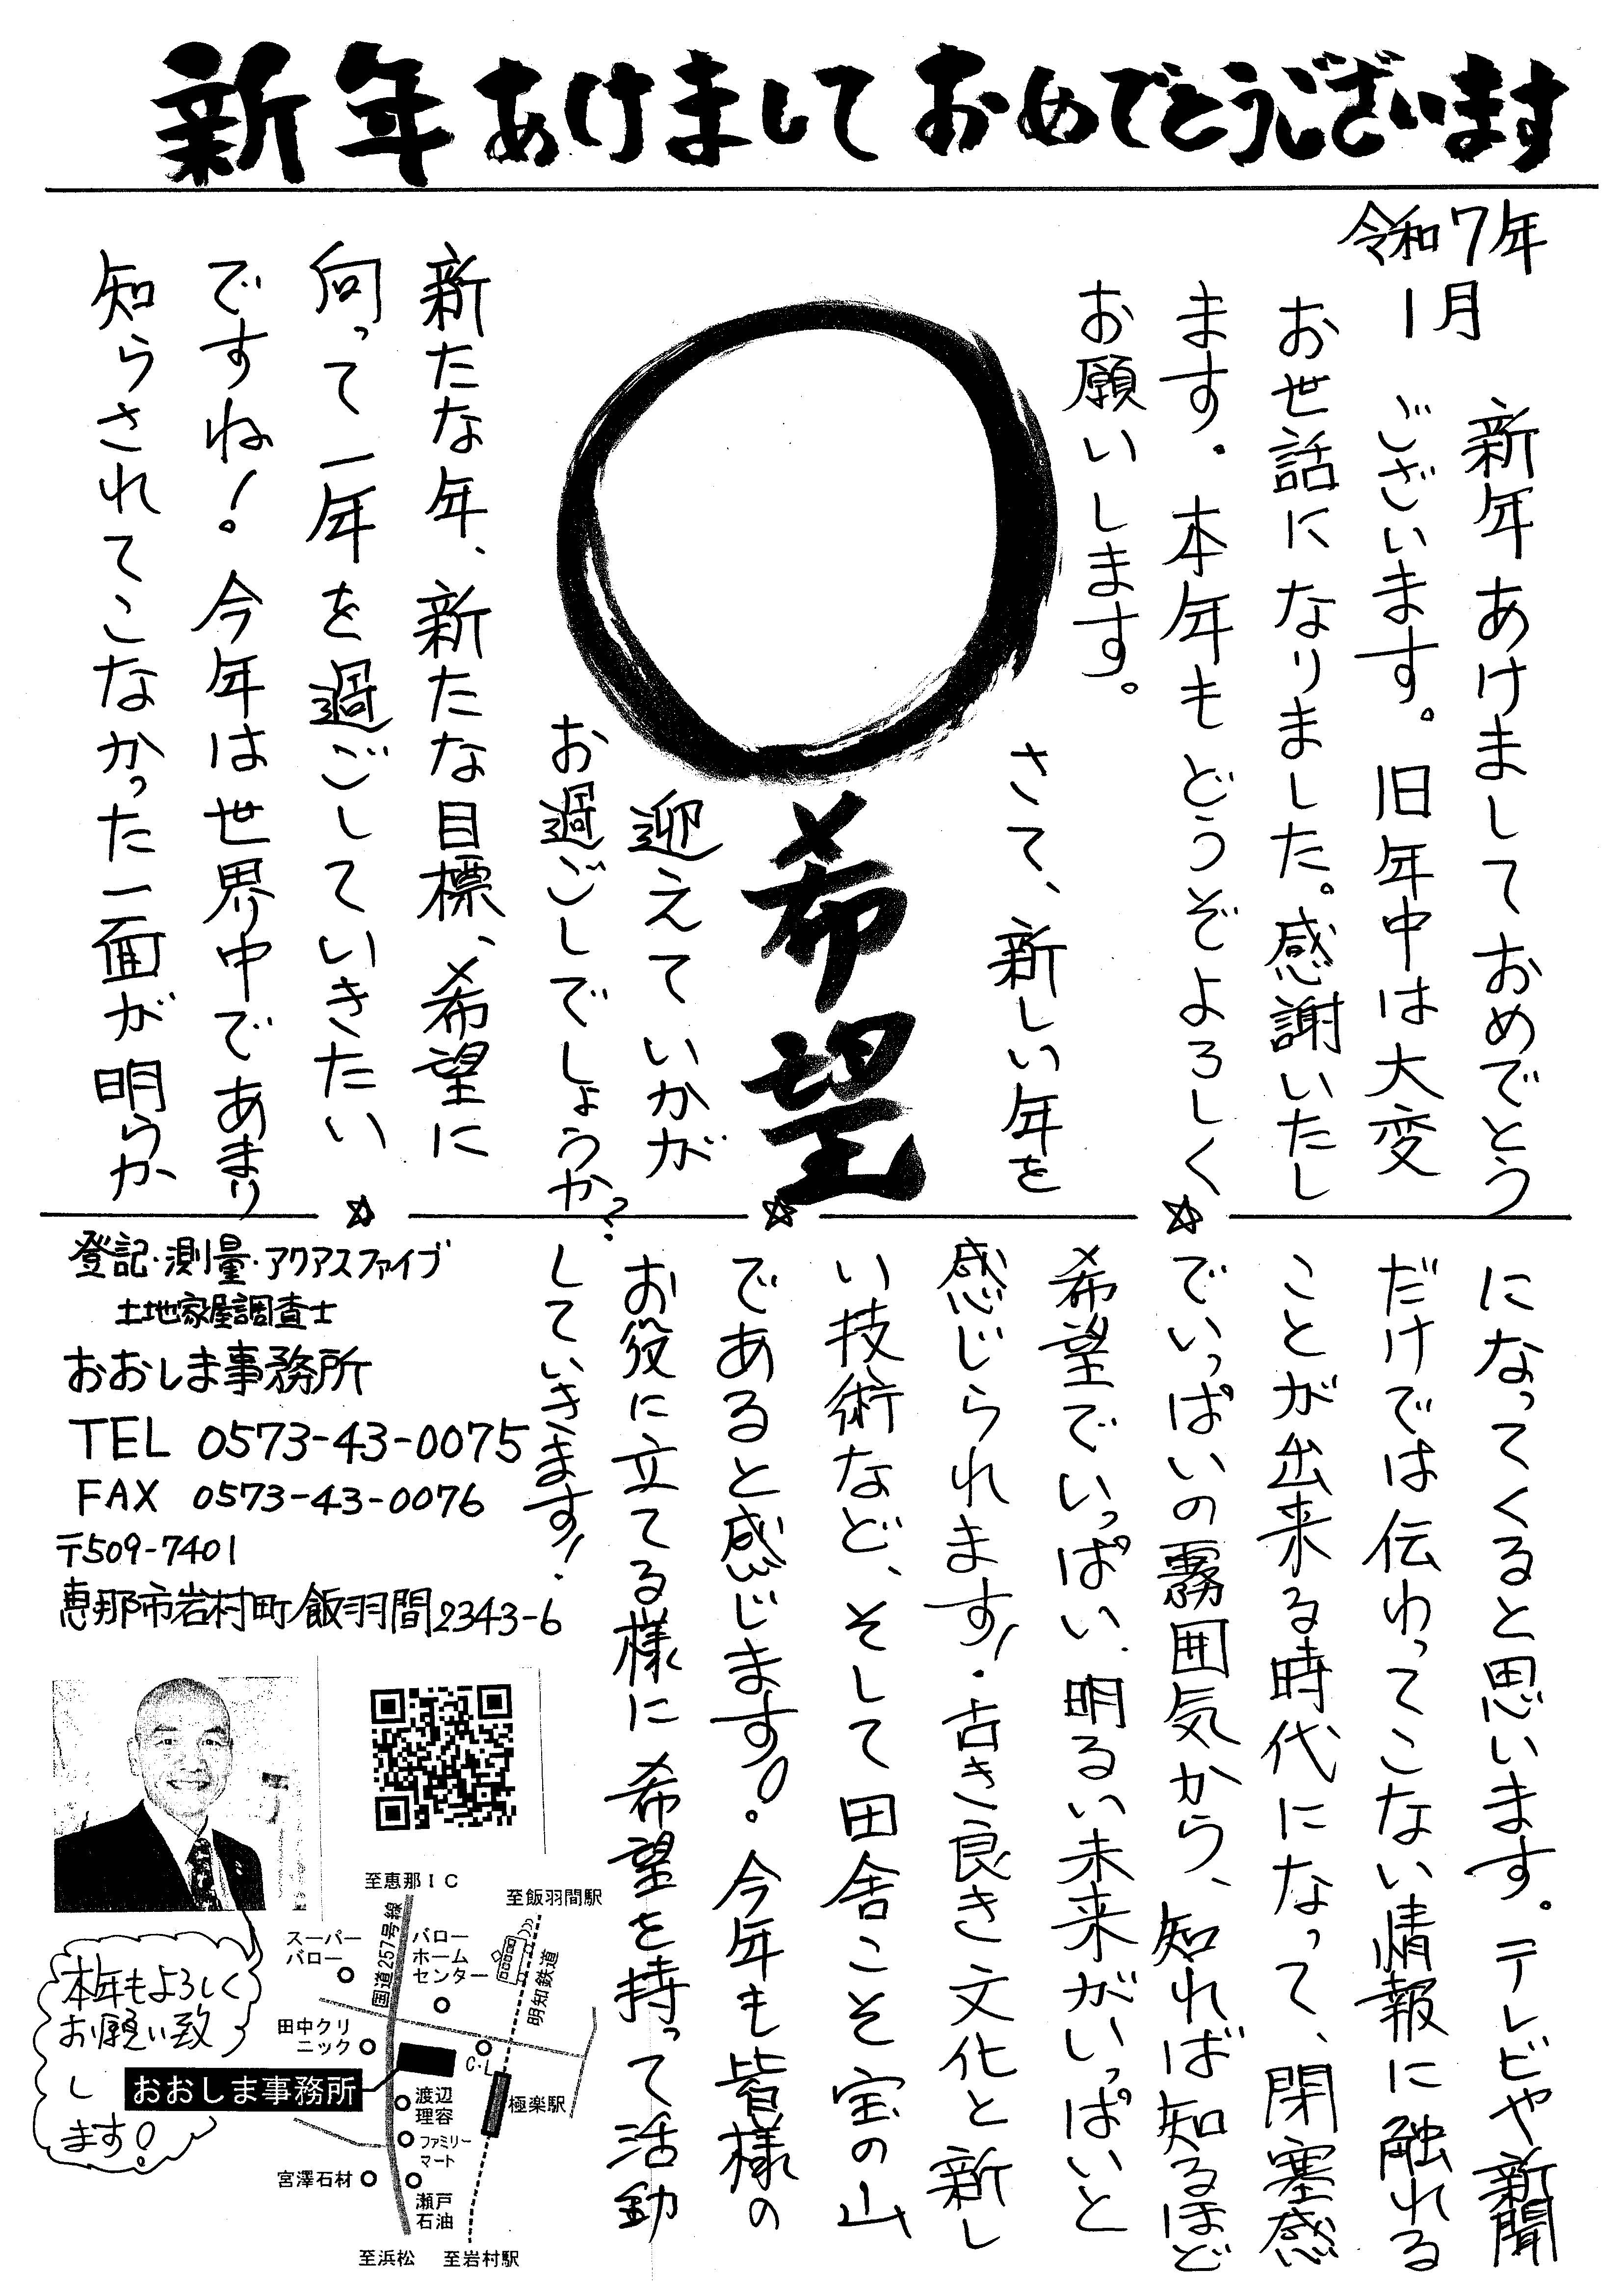 新年あけましておめでとうございます
令和7年
1月
新年あけましておめでとう
ございます。旧年中は大変
お世話になりました。感謝いたし
ます。本年もどうぞよろしく
お願いします。
さて、新しい年を
希望
迎えていかが
お過ごしでしょうか?
新たな年、新たな目標、希望に
向って一年を過ごしていきたい
ですね!。今年は世界中であまり
知らされてこなかった一面が明らか
になってくると思います。テレビや新聞
だけでは伝わってこない情報に触れる
ことが出来る時代になって、閉塞感
でいっぱいの霧囲気から、知れば知るほど
希望でいっぱい、明るい未来がいっぱいと
感じられます!・古き良き文化と新し
い技術など、そして田舎こそ宝の山
であると感じます!。今年も皆様の
お役に立てる様に希望を持って活動
していきます!
登記・測量・アクアスファイブ
土地家屋調査士
おおしま事務所
TEL 0573-43-0075
FAX 0573-43-0076
〒509-7401
恵那市岩村町飯羽間2343-6
本年もよろしく
お願い致
し
ます!
至恵那IC
至飯羽間駅
国道257号線
スーパー
バロー
バロー
ホーム
センター
明知鉄道
田中クリ
ニック
C・L
おおしま事務所
極楽駅
渡辺
理容
ファミリー
マート
宮澤石材
瀬戸
石油
至浜松
至岩村駅